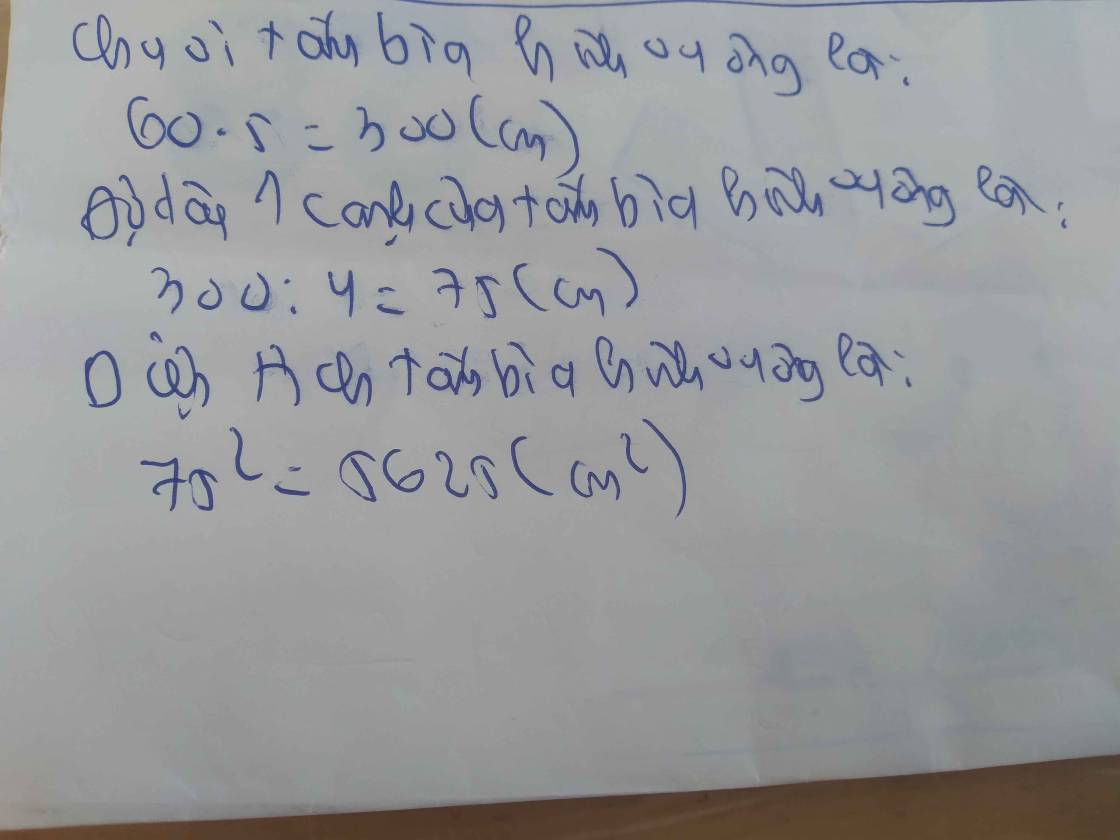 Chu vi tấm bìa hình vuông là:
60 . 5 = 300 (cm)
Độ dài 1 cạnh của tấm bìa hình vuông là:
300 : 4 = 75 (cm)
Diện tích tấm bìa hình vuông là:
75² = 5625 (cm²)